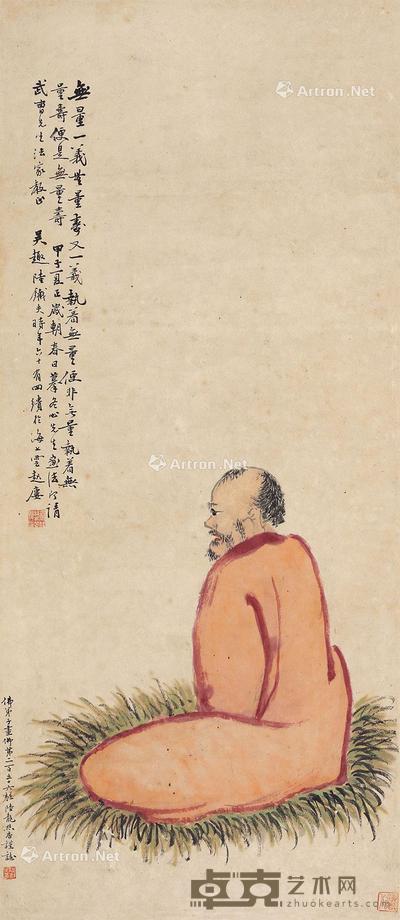 無量一義無量壽又一義執着無量便非無量執着無
量壽便是無量壽
甲子夏正歲朝春日摹冬心先生畫法
請
武曾先生法家教正
吴趣陸鐵夫時年六十有四
佛弟子畫佛第二百
Artron.Net
Artron.Net
Artron.Net
Artron.Net
卓克艺术网
www.zhuokearts.com